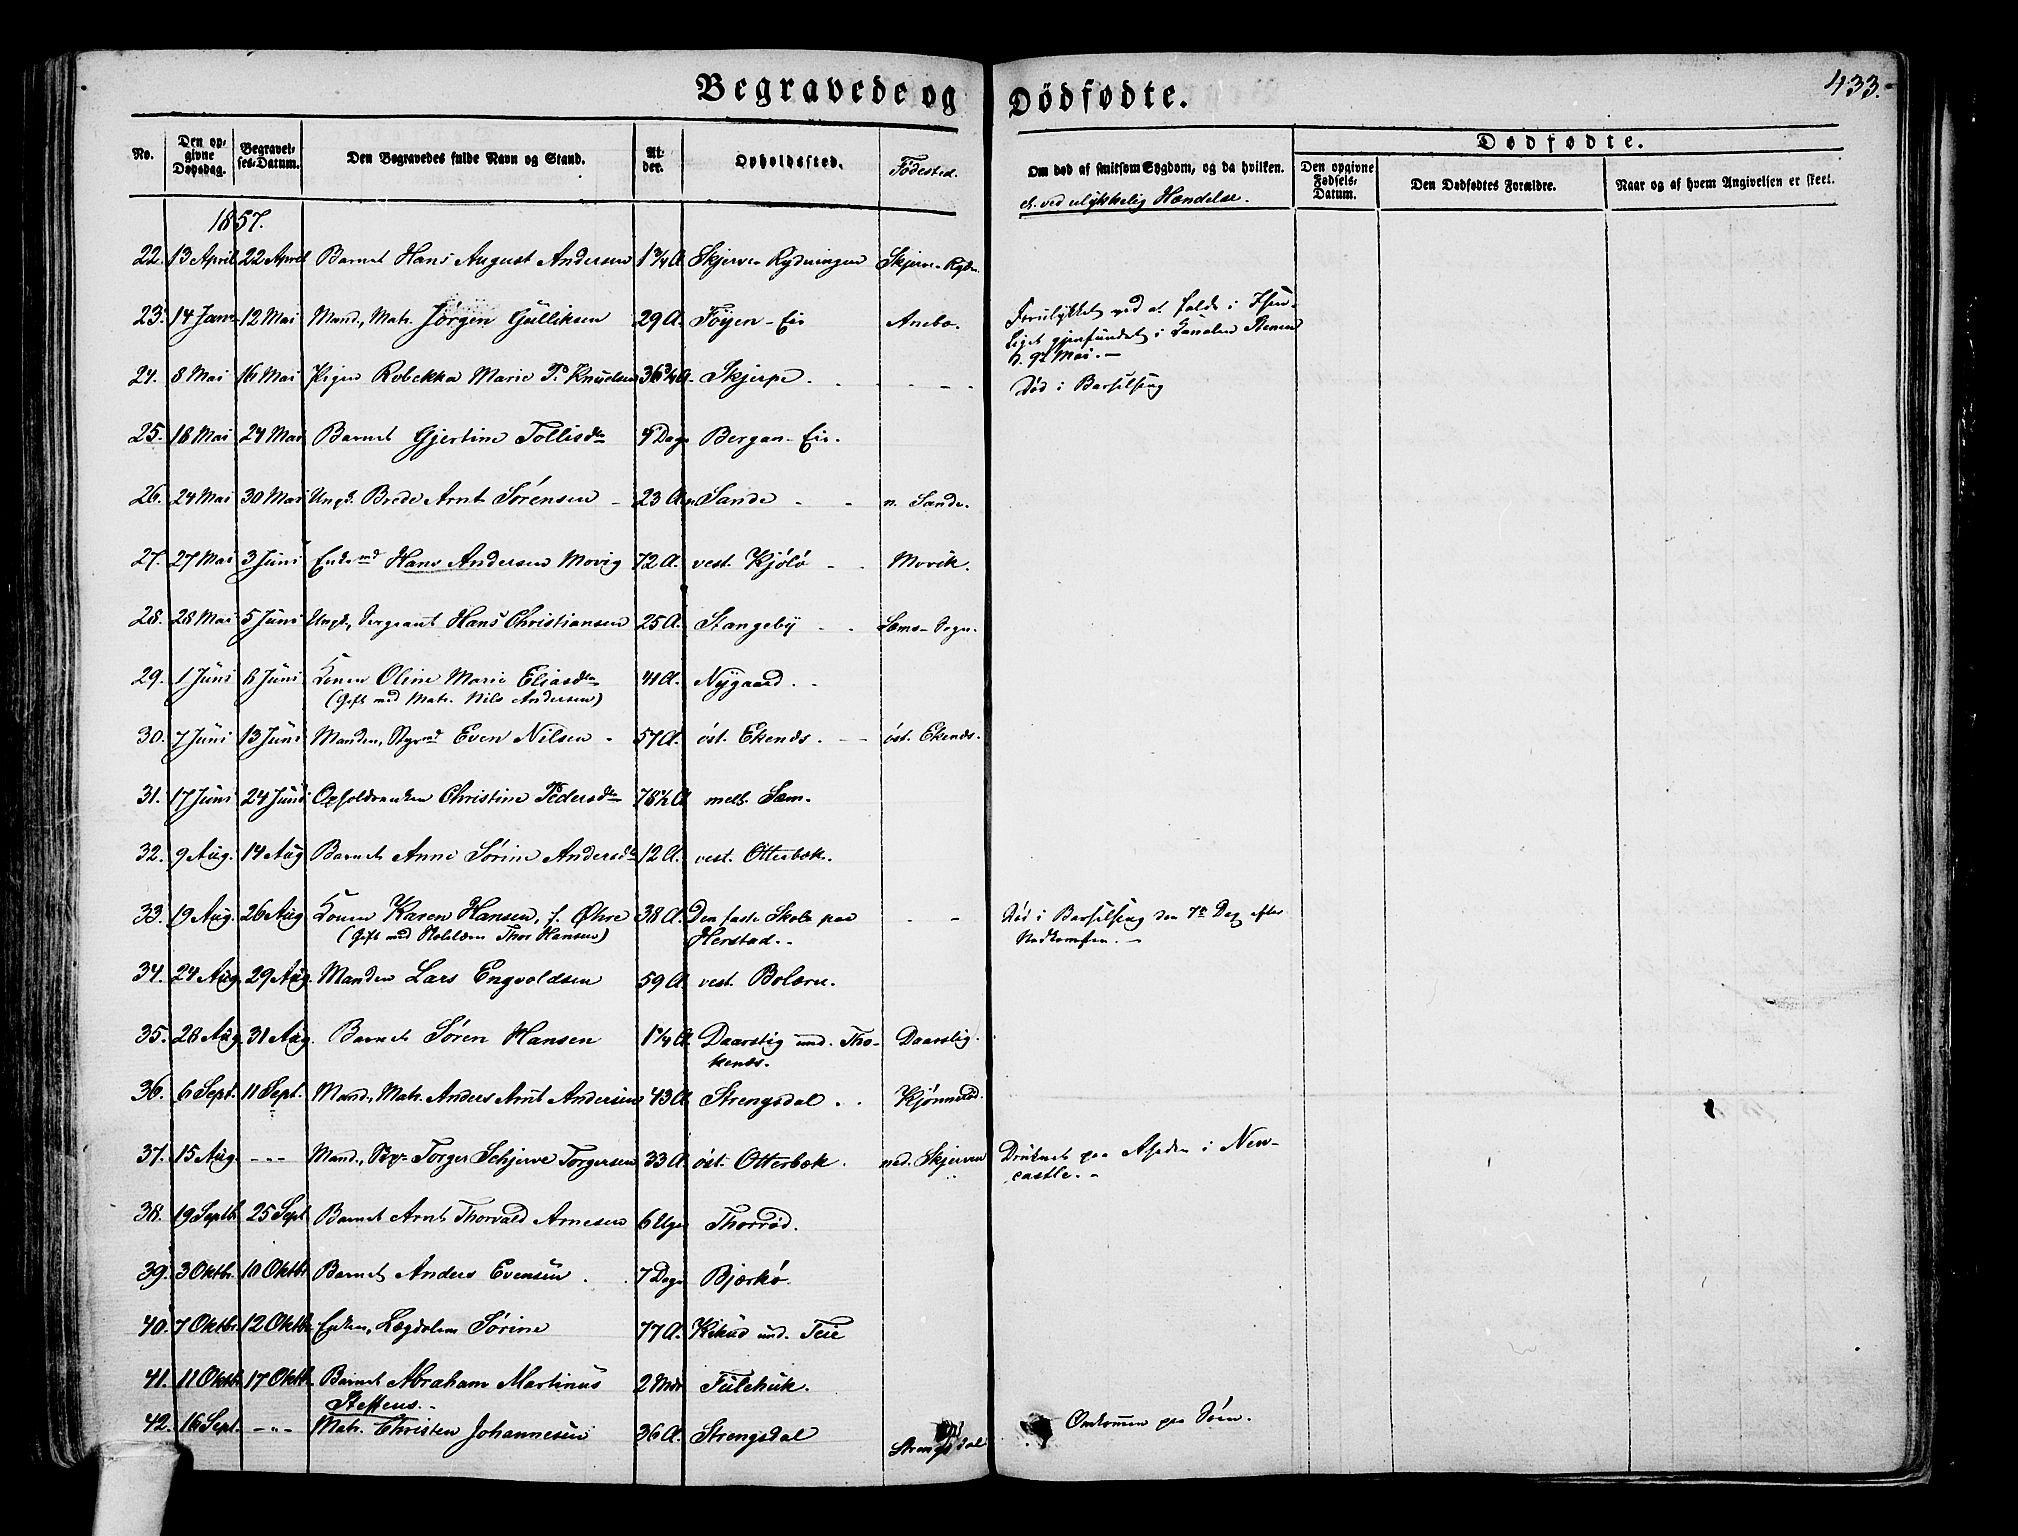 Begravede og Dödfødte.
433.
No. Den opgivne Dødsdag. Begravelses-Datum. Den Begravedes fulde Navn og Stand. Alder. Opholdssted. Födested. Om død af smitsom Sygdom, og da hvilken. el. ved ulykkelig Hændelse.
Dødfødte.
Den opgivne Fødsels-Datum. Den Dødfødtes Forældre. Naar og af hvem Angivelsen er skeet.
1857.
22. 13 April 22 April Barnet Hans August Andersen 1¾ A. Skjerve Rydningen Skjerve-Rydn.
23. 14 Jan 12 Mai Mand., Matr. Jørgen Gulliksen 29 A. Föyen-Eie Anebo. Forulykket ved at falde i
gjenfundet i Canalen
d. 9de Mai.
24. 8 Mai 16 Mai Pigen Rebekka Marie Knudsen 36¾ A. Skjerpe Död i Barselseng
25. 18 Mai 24 Mai Barnet Gjertine Tollisdtr 4 Dage Bergan-Eie.
26. 24 Mai 30 Mai Ungk. Brede Arnt Sörensen 23 A. n. Sande n. Sande.
27. 27 Mai 3 Juni Enkemd Hans Andersen Movig 72 A. vest. Kjölö Movik.
28. 28 Mai 5 Juni Ungk., Sergeant Hans Christiansen 25 A. Stangeby Sems-Sogn.
29. 1 Juni 8 Juni Konen Oline Marie Eliasdtr 41 A. Nygaard.
(Gift med Matr. Nils Andersen)
30. 7 Juni 13 Juni Manden, Styrmd Even Nilsen 57 A. öst. Ekenæs. öst. Ekenæs.
31. 17 Juni 24 Juni Opholdsenken Christine Pedersdtr 78½ A. mell. Sem.
32. 9 Aug. 14 Aug Barnet Anne Sörine Andersdtr 12 A. vest. Otterbæk.
33. 19 Aug. 26 Aug Konen Karen Hansen, f. Øhre 38 A. Den faste Skole paa Død i Barselseng den 7de Dag efter
(Gift med Skolelærer Thor Hansen) Herstad. Nedkomsten.
34. 24 Aug. 29 Aug. Manden Lars Engvoldsen 59 A. vest. Bolærn.
35. 28 Aug. 31 Aug. Barnet Sören Hansen 1¼ A. Daarslig und. Tho- Daarslig.
kenæs.
36. 6 Sept. 11 Sept. Mand., Matr. Anders Arnt Andersen 43 A. Strengsdal Kjönneröd.
37. 15 Aug. -"- Mand., Torger Schjerve Torgersen 33 A. öst. Otterbæk. ned. Skjerven Druknet paa Rheden i New-
castle.
38. 19 Septb. 25 Sept Barnet Arnt Thorvald Arnesen 6 Uger Thorröd.
39. 3 Oktbr. 10 Oktbr Barnet Anders Evensen 7 Dage Bjærkö.
40. 7 Oktbr. 12 Oktbr Enken, Lægdslem Sörine 77 A. und. Teie
41. 11 Oktb. 17 Oktb. Barnet Abraham Martinus 2 Mdr Fulehuk.
Steffens.
42. 16 Sept. -"- Matr. Christen Johannesen 36 A. Strengsdal Strengsdal Omkommen paa Söen.